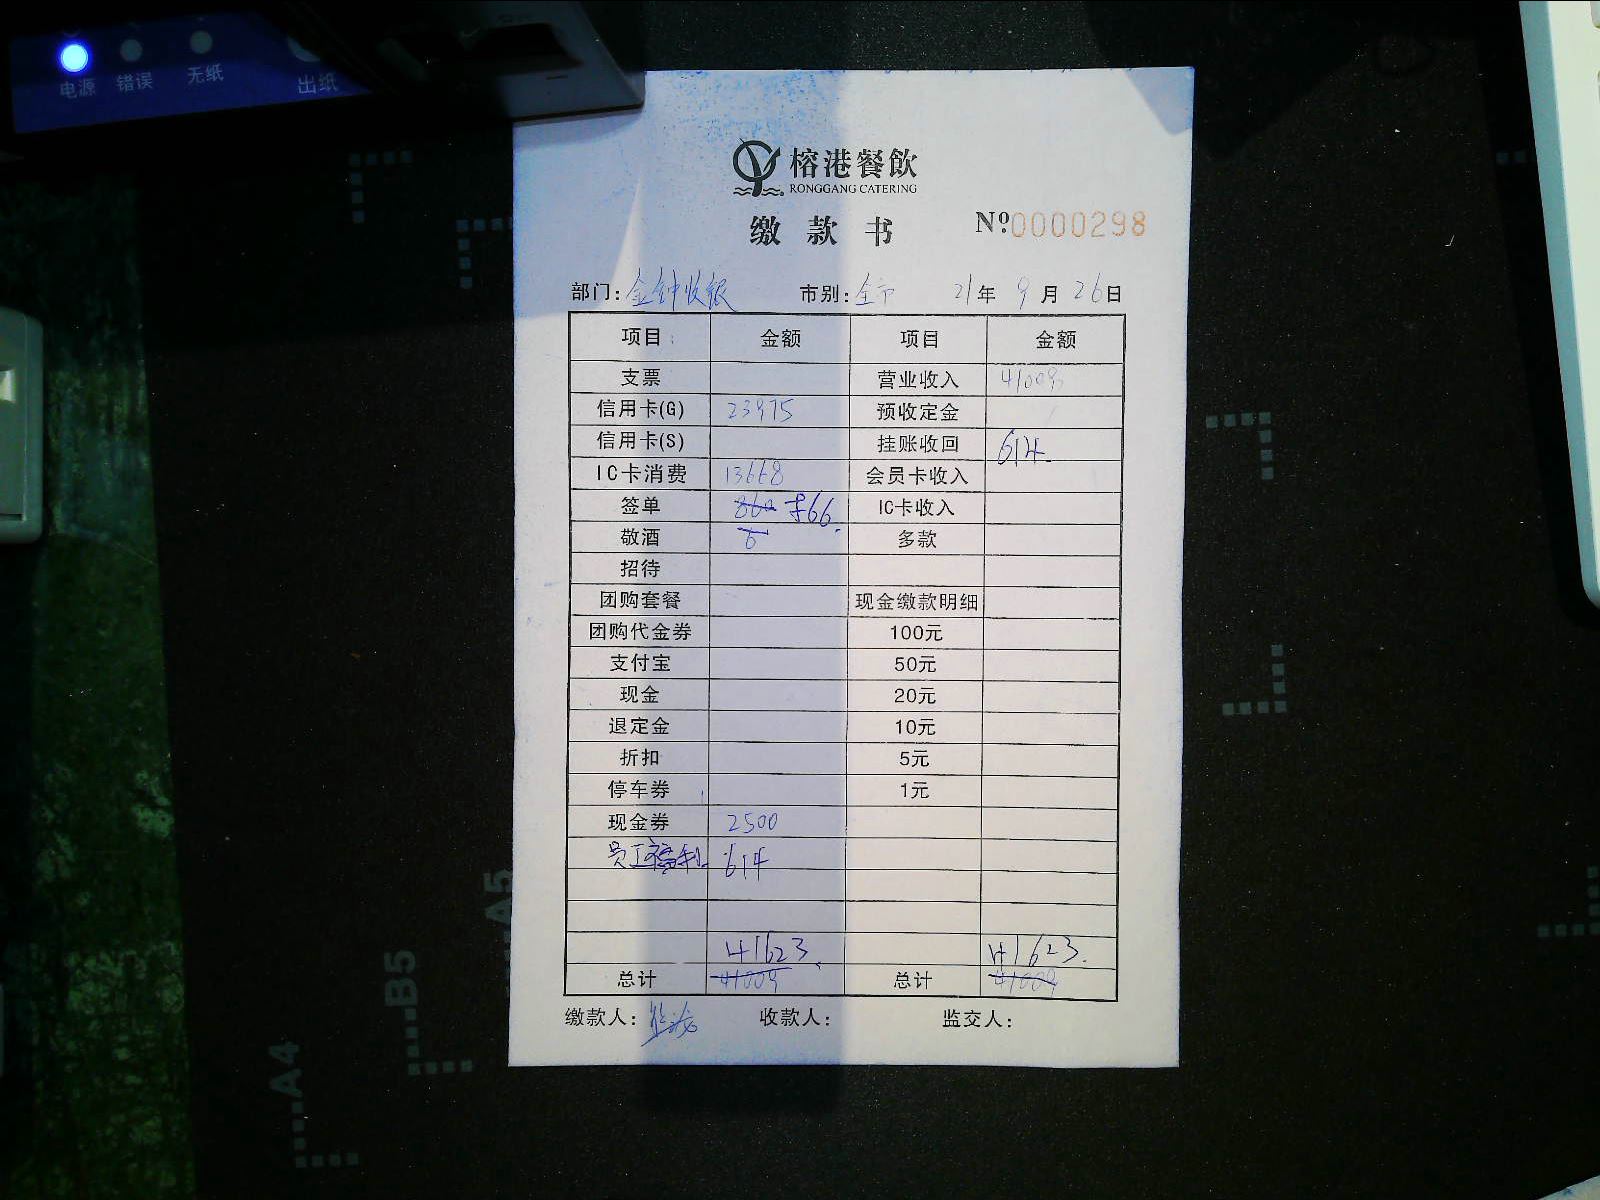 电源 错误 无纸 出纸
榕港餐飲
RONGGANG CATERING
缴款书 Nº0000298
部门:金钟收银 市别:全市 21年 9月 26日
项目 金额 项目 金额
支票 营业收入 41009
信用卡(G) 23975 预收定金
信用卡(S) 挂账收回 614.
IC卡消费 13668 会员卡收入
签单 860 866. IC卡收入
敬酒 6 多款
招待
团购套餐 现金缴款明细
团购代金券 100元
支付宝 50元
现金 20元
退定金 10元
折扣 5元
停车券 1元
现金券 2500
员工福利 614
41623. 41623.
总计 41009 总计 41009
缴款人: 收款人: 监交人:
A5
B5
A4